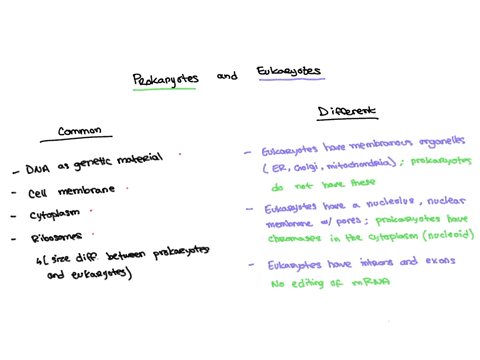 Prokaryotes and Eukaryotes
Common
- DNA as genetic material
- Cell membrane
- Cytoplasm
- Ribosomes
↳ [size diff. between prokaryotes
and eukaryotes)
Different
- Eukaryotes have membranous organelles
(ER, Golgi, mitochondria); prokaryotes
do not have these
- Eukaryotes have a nucleolus, nuclear
membrane w/ pores; prokaryotes have
chromases in the cytoplasm (nucleoid)
- Eukaryotes have introns and exons
No editing of mRNA